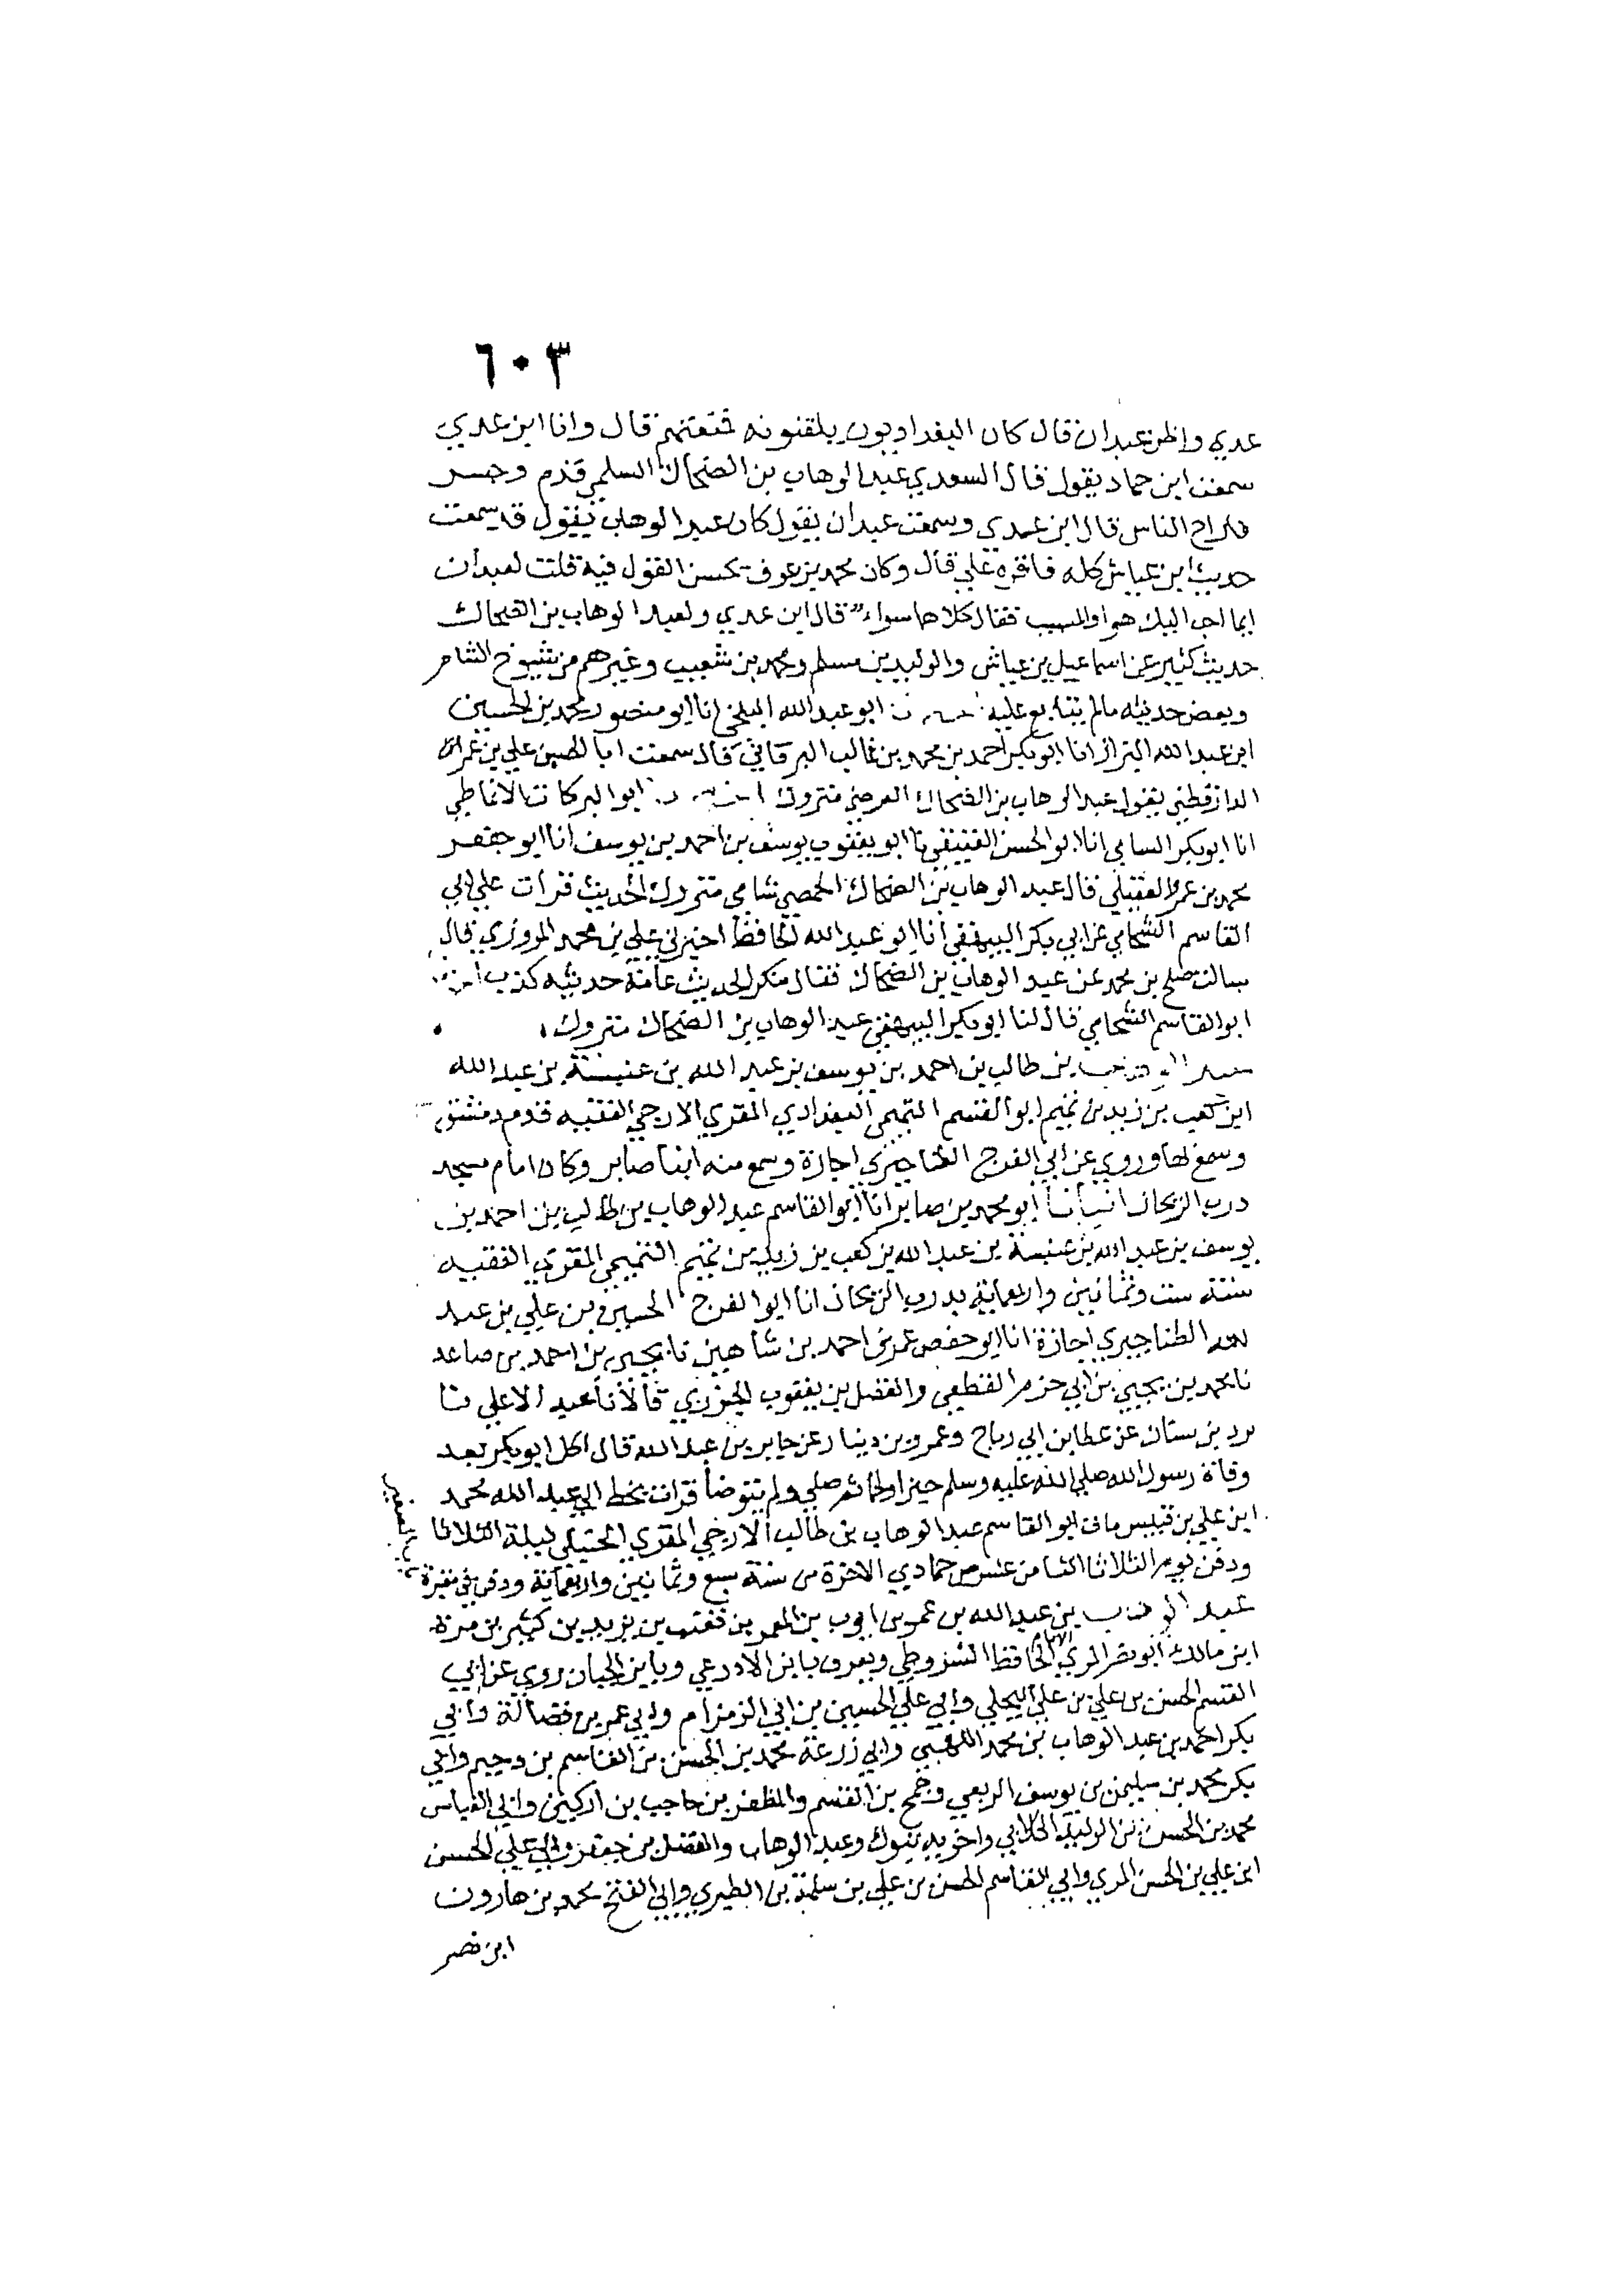 ٦٠٣
عدي واظن عبدان قال كان البغداديون يلقنونه فمنعتهم قال وانا ابن عدي
سمعت ابن حماد يقول قال السعدي عبد الوهاب بن الضحاك السلمي قدم وجسر
فاراح الناس قال ابن عدي وسمعت عبدان يقول كان عبد الوهاب يقول قد سمعت
حديث ابن عياش كله فاقره علي قال وكان محمد بن عوف يحسن القول فيه قلت لعبدان
ايما احب اليك هو او المسيب فقال كلاهما سواء قال ابن عدي ولعبد الوهاب بن الضحاك
حديث كثير عن اسماعيل بن عياش والوليد بن مسلم ومحمد بن شعيب وغيرهم من شيوخ الشام
وبعض حديثه مالم يتابع عليه ابو عبد الله البلخي انا ابو منصور محمد بن الحسين
ابن عبد الله البزاز انا ابو بكر احمد بن محمد بن غالب البرقاني قال سمعت ابا الحسين علي بن عمر
الدارقطني يقول عبد الوهاب بن الضحاك العرضي متروك ابو البركات الانماطي
انا ابو بكر السامي انا ابو الحسن العتيقي نا ابو يعقوب يوسف بن احمد بن يوسف انا ابو جعفر
محمد بن عمرو العقيلي قال عبد الوهاب بن الضحاك الحمصي شامي متروك الحديث قرات علي ابي
القاسم الشحامي عن ابي بكر البيهقي انا ابو عبد الله الحافظ اخبرني علي بن محمد المروزي قال
سالت صلح بن محمد عن عبد الوهاب بن الضحاك فقال منكر الحديث عامة حديثه كذب
ابو القاسم الشحامي قال لنا ابو بكر البيهقي عبد الوهاب بن الضحاك متروك
عبد الوهاب بن طالب بن احمد بن يوسف بن عبد الله بن عنبسة بن عبد الله
ابن كعب بن زيد بن تميم ابو القسم التميمي البغدادي المقري الازجي الفقيه قدم دمشق
وسمع بها وروي عن ابي الفرج الطناجيري اجازة وسمع منه ابنا صابر وكان امام مسجد
درب الريحان انبانا ابو محمد بن صابر انا ابو القاسم عبد الوهاب بن طالب بن احمد بن
يوسف بن عبد الله بن عنبسة بن عبد الله بن كعب بن زيد بن تميم التميمي المقري الفقيه
سنة ست وثمانين واربعماية بدرب الريحان انا ابو الفرج الحسين بن علي بن عبيد
الله الطناجيري اجازة انا ابو حفص عمر بن احمد بن شاهين نا يحيي بن احمد بن صاعد
نا محمد بن يحيي بن ابي حزم القطعي والفضل بن يعقوب الجزري قالا نا عبد الاعلي نا
برد بن سنان عن عطا بن ابي رباح وعمرو بن دينار عن جابر بن عبد الله قال اكل ابو بكر بعد
وفاة رسول الله صلي الله عليه وسلم خبزا ولحما ثم صلي ولم يتوضأ قرات بخط ابي عبد الله محمد
ابن علي بن قبيس مات ابو القاسم عبد الوهاب بن طالب الازجي المقري الحنبلي ليلة الثلاثا
ودفن يوم الثلاثا الثامن عشر من جمادي الاخرة من سنة سبع وثمانين واربعماية ودفن في مقبرة
باب الصغير
عبد الوهاب بن عبد الله بن عمر بن ايوب بن المعمر بن قعنب بن يزيد بن كثير بن مرة
ابن مالك ابو نصر المري الامام الحافظ الشروطي ويعرف بابن الاذرعي وبابن الجبان روي عن ابي
القسم الحسن بن علي بن علي البجلي وابي علي الحسين بن ابي الزمزام وابي عمر بن فضالة وابي
بكر احمد بن عبد الوهاب بن محمد اللهبي وابي زرعة محمد بن الحسن بن القاسم بن دحيم وابي
بكر محمد بن سليمن بن يوسف الربعي وجمح بن القسم والمظفر بن حاجب بن اركين وابي العباس
محمد بن الحسن بن الوليد الكلابي واخويه تبوك وعبد الوهاب والفضل بن جعفر وابي علي الحسن
ابن علي بن الحسن المري وابي القاسم الحسن بن علي بن سلمة بن الطبري وابي الفتح محمد بن هارون
ابن نصر